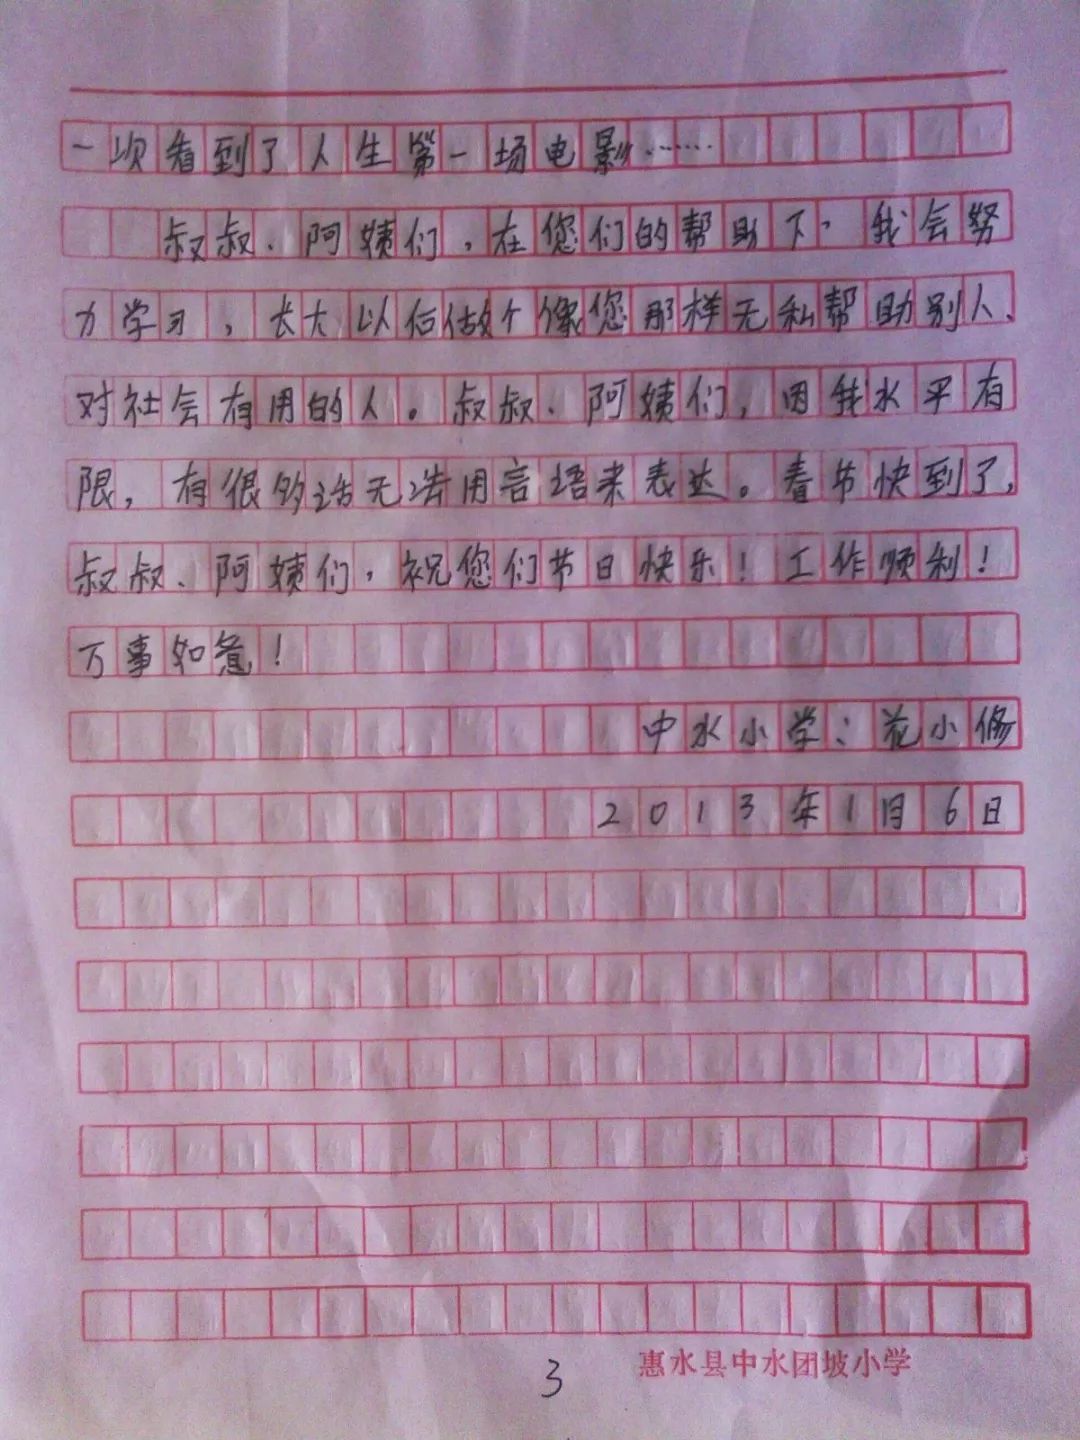 一次看到了人生第一场电影……
叔叔、阿姨们，在您们的帮助下，我会努
力学习，长大以后做个像您那样无私帮助别人、
对社会有用的人。叔叔、阿姨们，因我水平有
限，有很多话无法用言语来表达。春节快到了，
叔叔、阿姨们，祝您们节日快乐！工作顺利！
万事如意！
中水小学：花小修
2013年1月6日
3
惠水县中水团坡小学